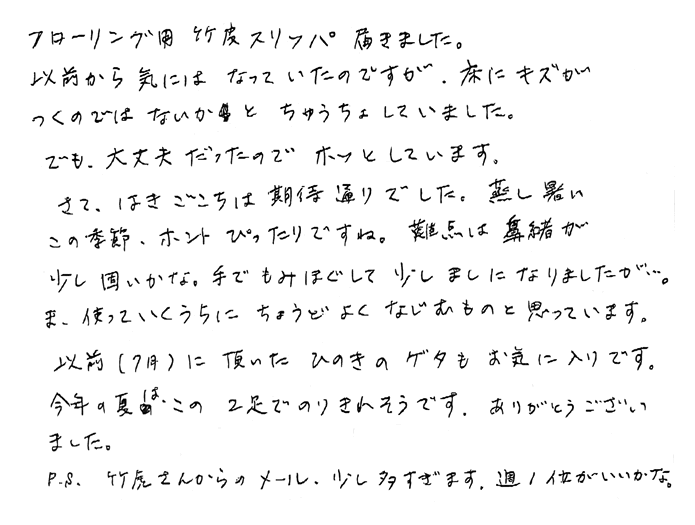 フローリング用 竹皮スリッパ 届きました。
以前から気にはなっていたのですが、床にキズが
つくのではないかと ちゅうちょしていました。
でも、大丈夫だったのでホッとしています。
さて、はきごこちは期待通りでした。蒸し暑い
この季節、ホントぴったりですね。難点は鼻緒が
少し固いかな。手でもみほぐして少しましになりましたが…。
ま、使っていくうちにちょうどよくなじむものと思っています。
以前(7月)に頂いたひのきのゲタもお気に入りです。
今年の夏は、この2足でのりきれそうです。ありがとうござい
ました。
P.S. 竹虎さんからのメール、少し多すぎます。週1位がいいかな。